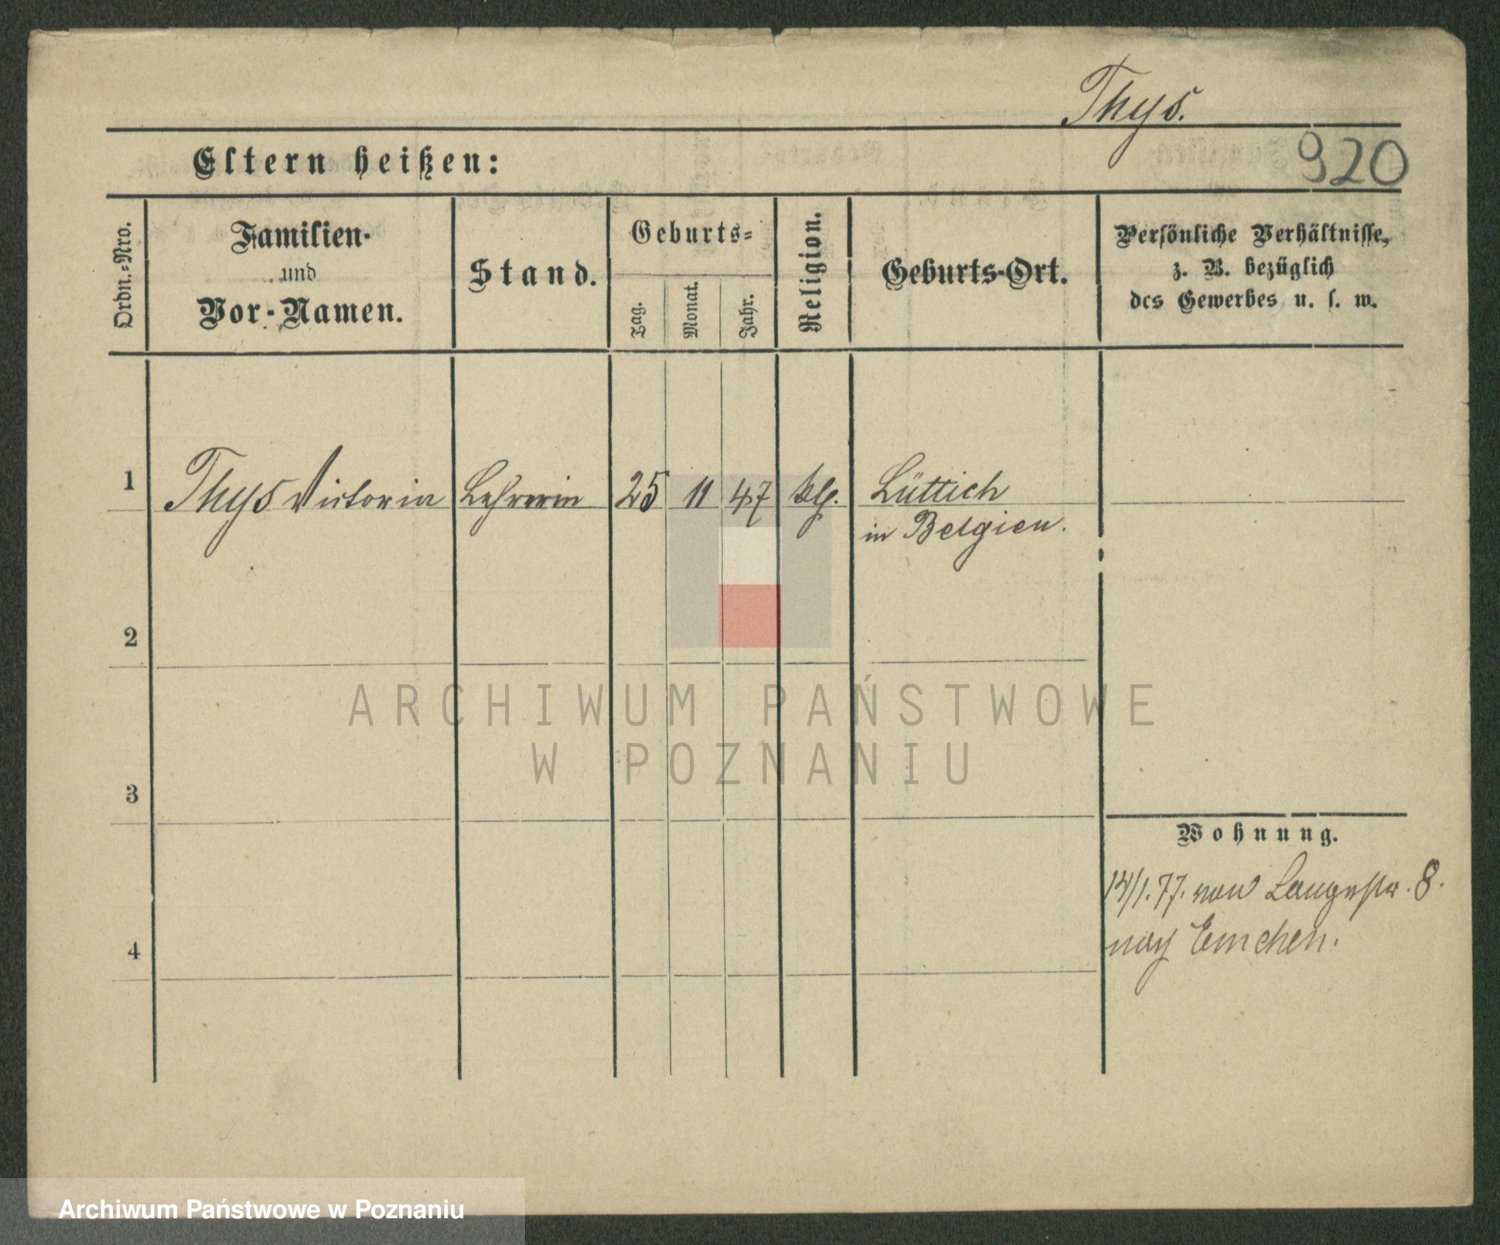 Thys.
920
Eltern heißen:
Ordn.-Nro.
Familien-
und
Vor-Namen.
Stand.
Geburts-
Tag.
Monat.
Jahr.
Religion.
Geburts-Ort.
Persönliche Verhältnisse,
z. B. bezüglich
des Gewerbes u. s. w.
1 Thys Victoria Lehrerin 25 11 47 kth. Lüttich
in Belgien.
2
3
4
ARCHIWUM PAŃSTWOWE
W POZNANIU
Wohnung.
14/1.77. von Langestr. 8.
nach Emchen.
Archiwum Państwowe w Poznaniu